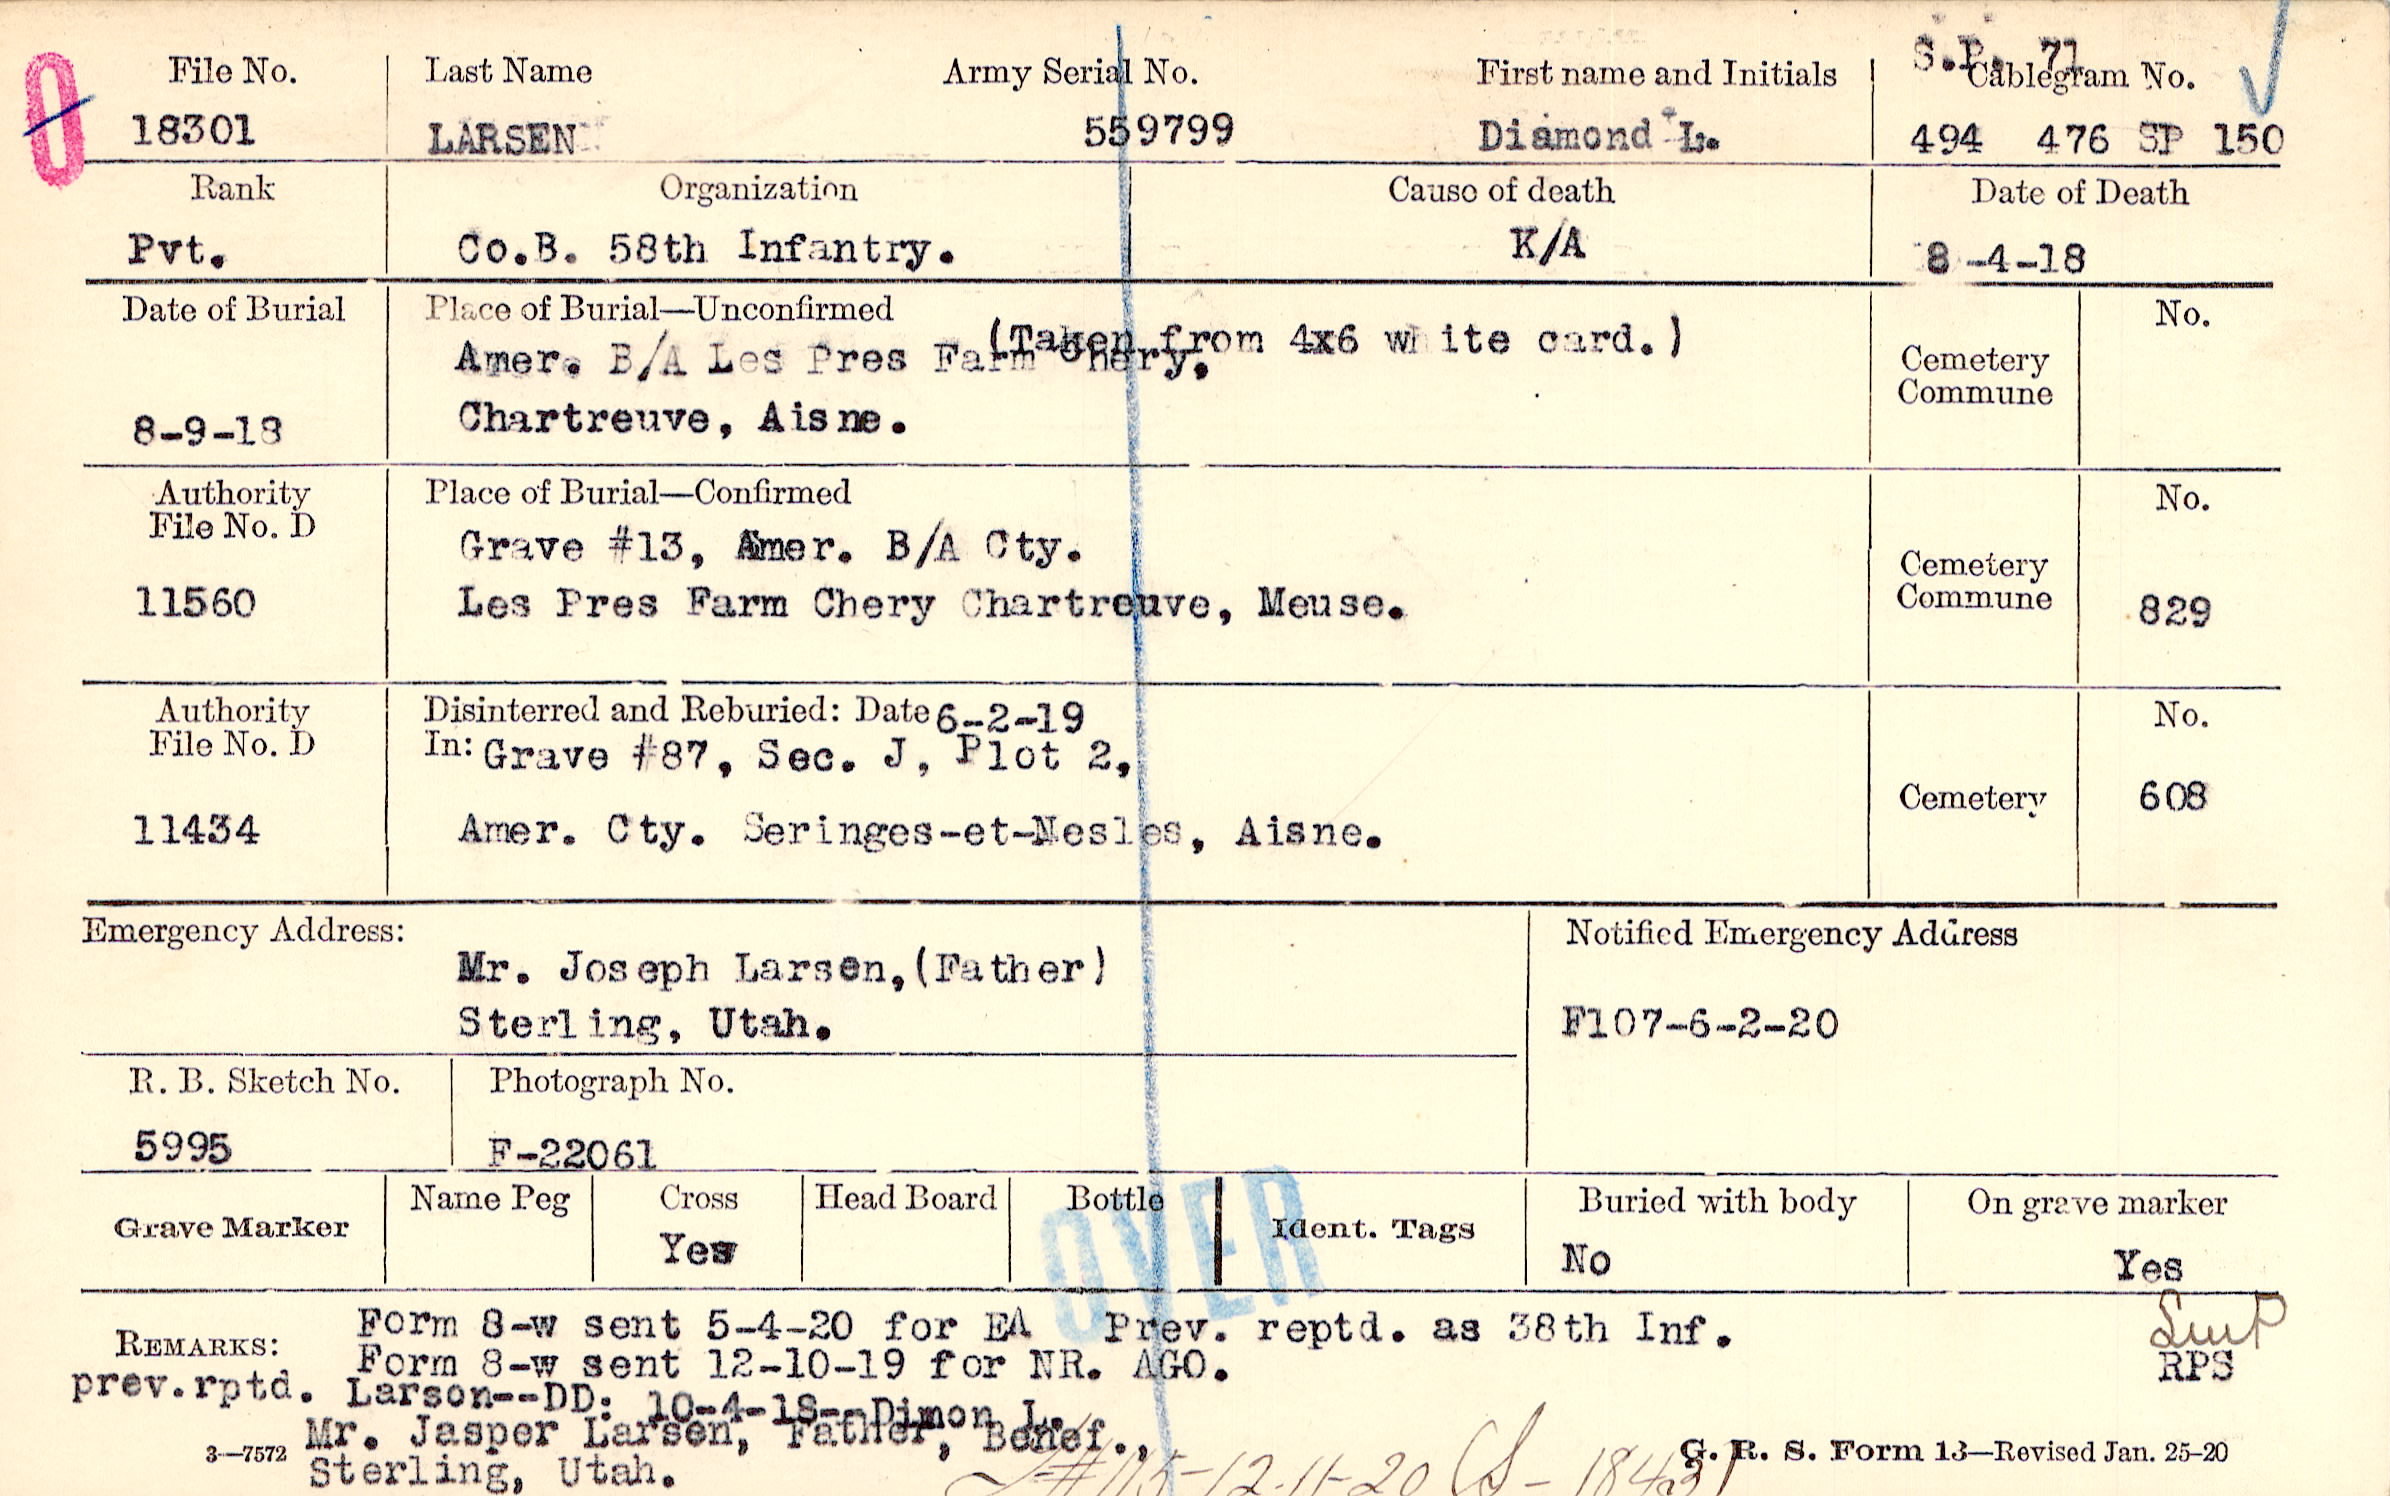 S.P. 71
File No. Last Name Army Serial No. First name and Initials Cablegram No.
18301 LARSEN 559799 Diamond L. 494 476 SP 150
Rank Organization Cause of death Date of Death
Pvt. Co.B. 58th Infantry. K/A 8-4-18
Date of Burial Place of Burial—Unconfirmed No.
(Taken from 4x6 white card.)
Amer. B/A Les Pres Farm Chery, Cemetery
Commune
8-9-18 Chartreuve, Aisne.
Authority Place of Burial—Confirmed No.
File No. D
Grave #13, Amer. B/A Cty. Cemetery
11560 Les Pres Farm Chery Chartreuve, Meuse. Commune 829
Authority Disinterred and Reburied: Date 6-2-19 No.
File No. D In: Grave #87, Sec. J, Plot 2,
Cemetery 608
11434 Amer. Cty. Seringes-et-Nesles, Aisne.
Emergency Address: Notified Emergency Address
Mr. Joseph Larsen,(Father)
Sterling, Utah. F107-6-2-20
R. B. Sketch No. Photograph No.
5995 F-22061
Grave Marker Name Peg Cross Head Board Bottle Ident. Tags Buried with body On grave marker
Yes No Yes
OVER
REMARKS: Form 8-w sent 5-4-20 for EA Prev. reptd. as 38th Inf.
Form 8-w sent 12-10-19 for NR. AGO. RPS
prev.rptd. Larson--DD: 10-4-18--Dimon L.
Mr. Jasper Larsen, Father, Benef.,
Sterling, Utah.
3—7572 G. R. S. Form 13—Revised Jan. 25-20